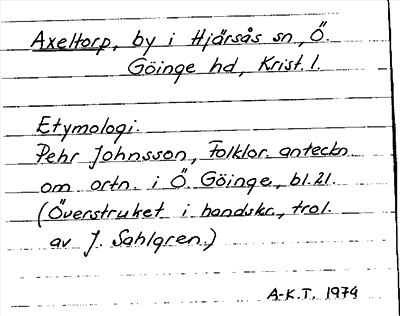 Axeltorp, by i Hjärsås sn, Ö.
Göinge hd, Krist. l.
Etymologi:
Pehr Johnsson, Folklor. anteckn.
om ortn. i Ö. Göinge, bl. 21.
(Överstruket i handskr., trol.
av J. Sahlgren.)
A-K.T. 1974